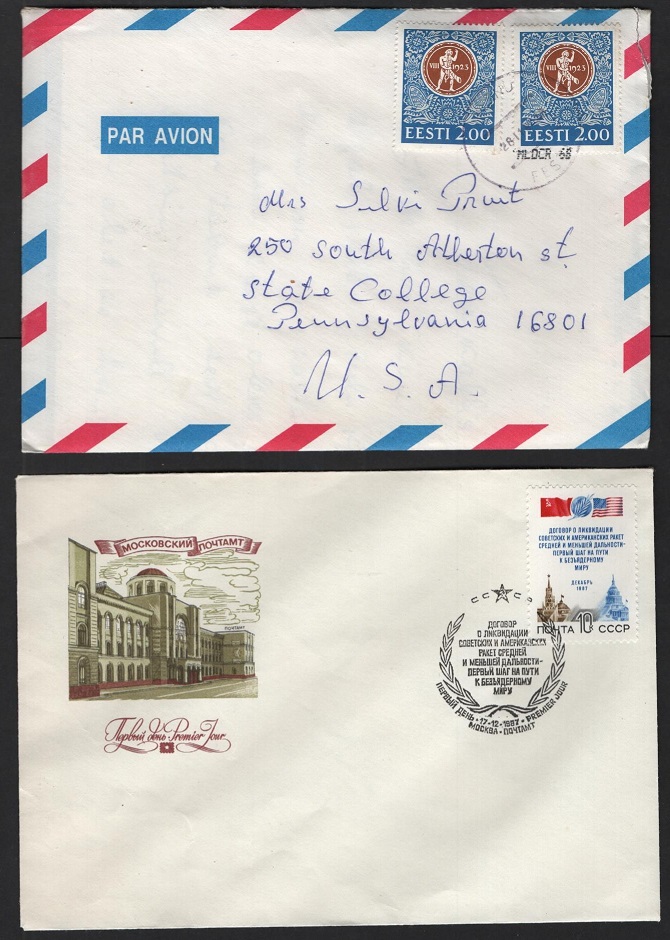 VIII 1923
EESTI 2.00
VIII 1923
EESTI 2.00
PAR AVION
MLDCR 68
EES
Mrs Silvi Pruit
250 South Atherton st.
State College
Pennsylvania 16801
U. S. A.
МОСКОВСКИЙ ПОЧТАМТ
ПОЧТАМТ
Первый день Premier Jour
ДОГОВОР О ЛИКВИДАЦИИ
СОВЕТСКИХ И АМЕРИКАНСКИХ РАКЕТ
СРЕДНЕЙ И МЕНЬШЕЙ ДАЛЬНОСТИ-
ПЕРВЫЙ ШАГ НА ПУТИ
К БЕЗЪЯДЕРНОМУ
МИРУ
ДЕКАБРЬ
1987
ПОЧТА 10К СССР
СССР
ДОГОВОР
О ЛИКВИДАЦИИ
СОВЕТСКИХ И АМЕРИКАНСКИХ
РАКЕТ СРЕДНЕЙ
И МЕНЬШЕЙ ДАЛЬНОСТИ-
ПЕРВЫЙ ШАГ НА ПУТИ
К БЕЗЪЯДЕРНОМУ
МИРУ
ПЕРВЫЙ ДЕНЬ • 17-12-1987 • PREMIER JOUR
МОСКВА • ПОЧТАМТ